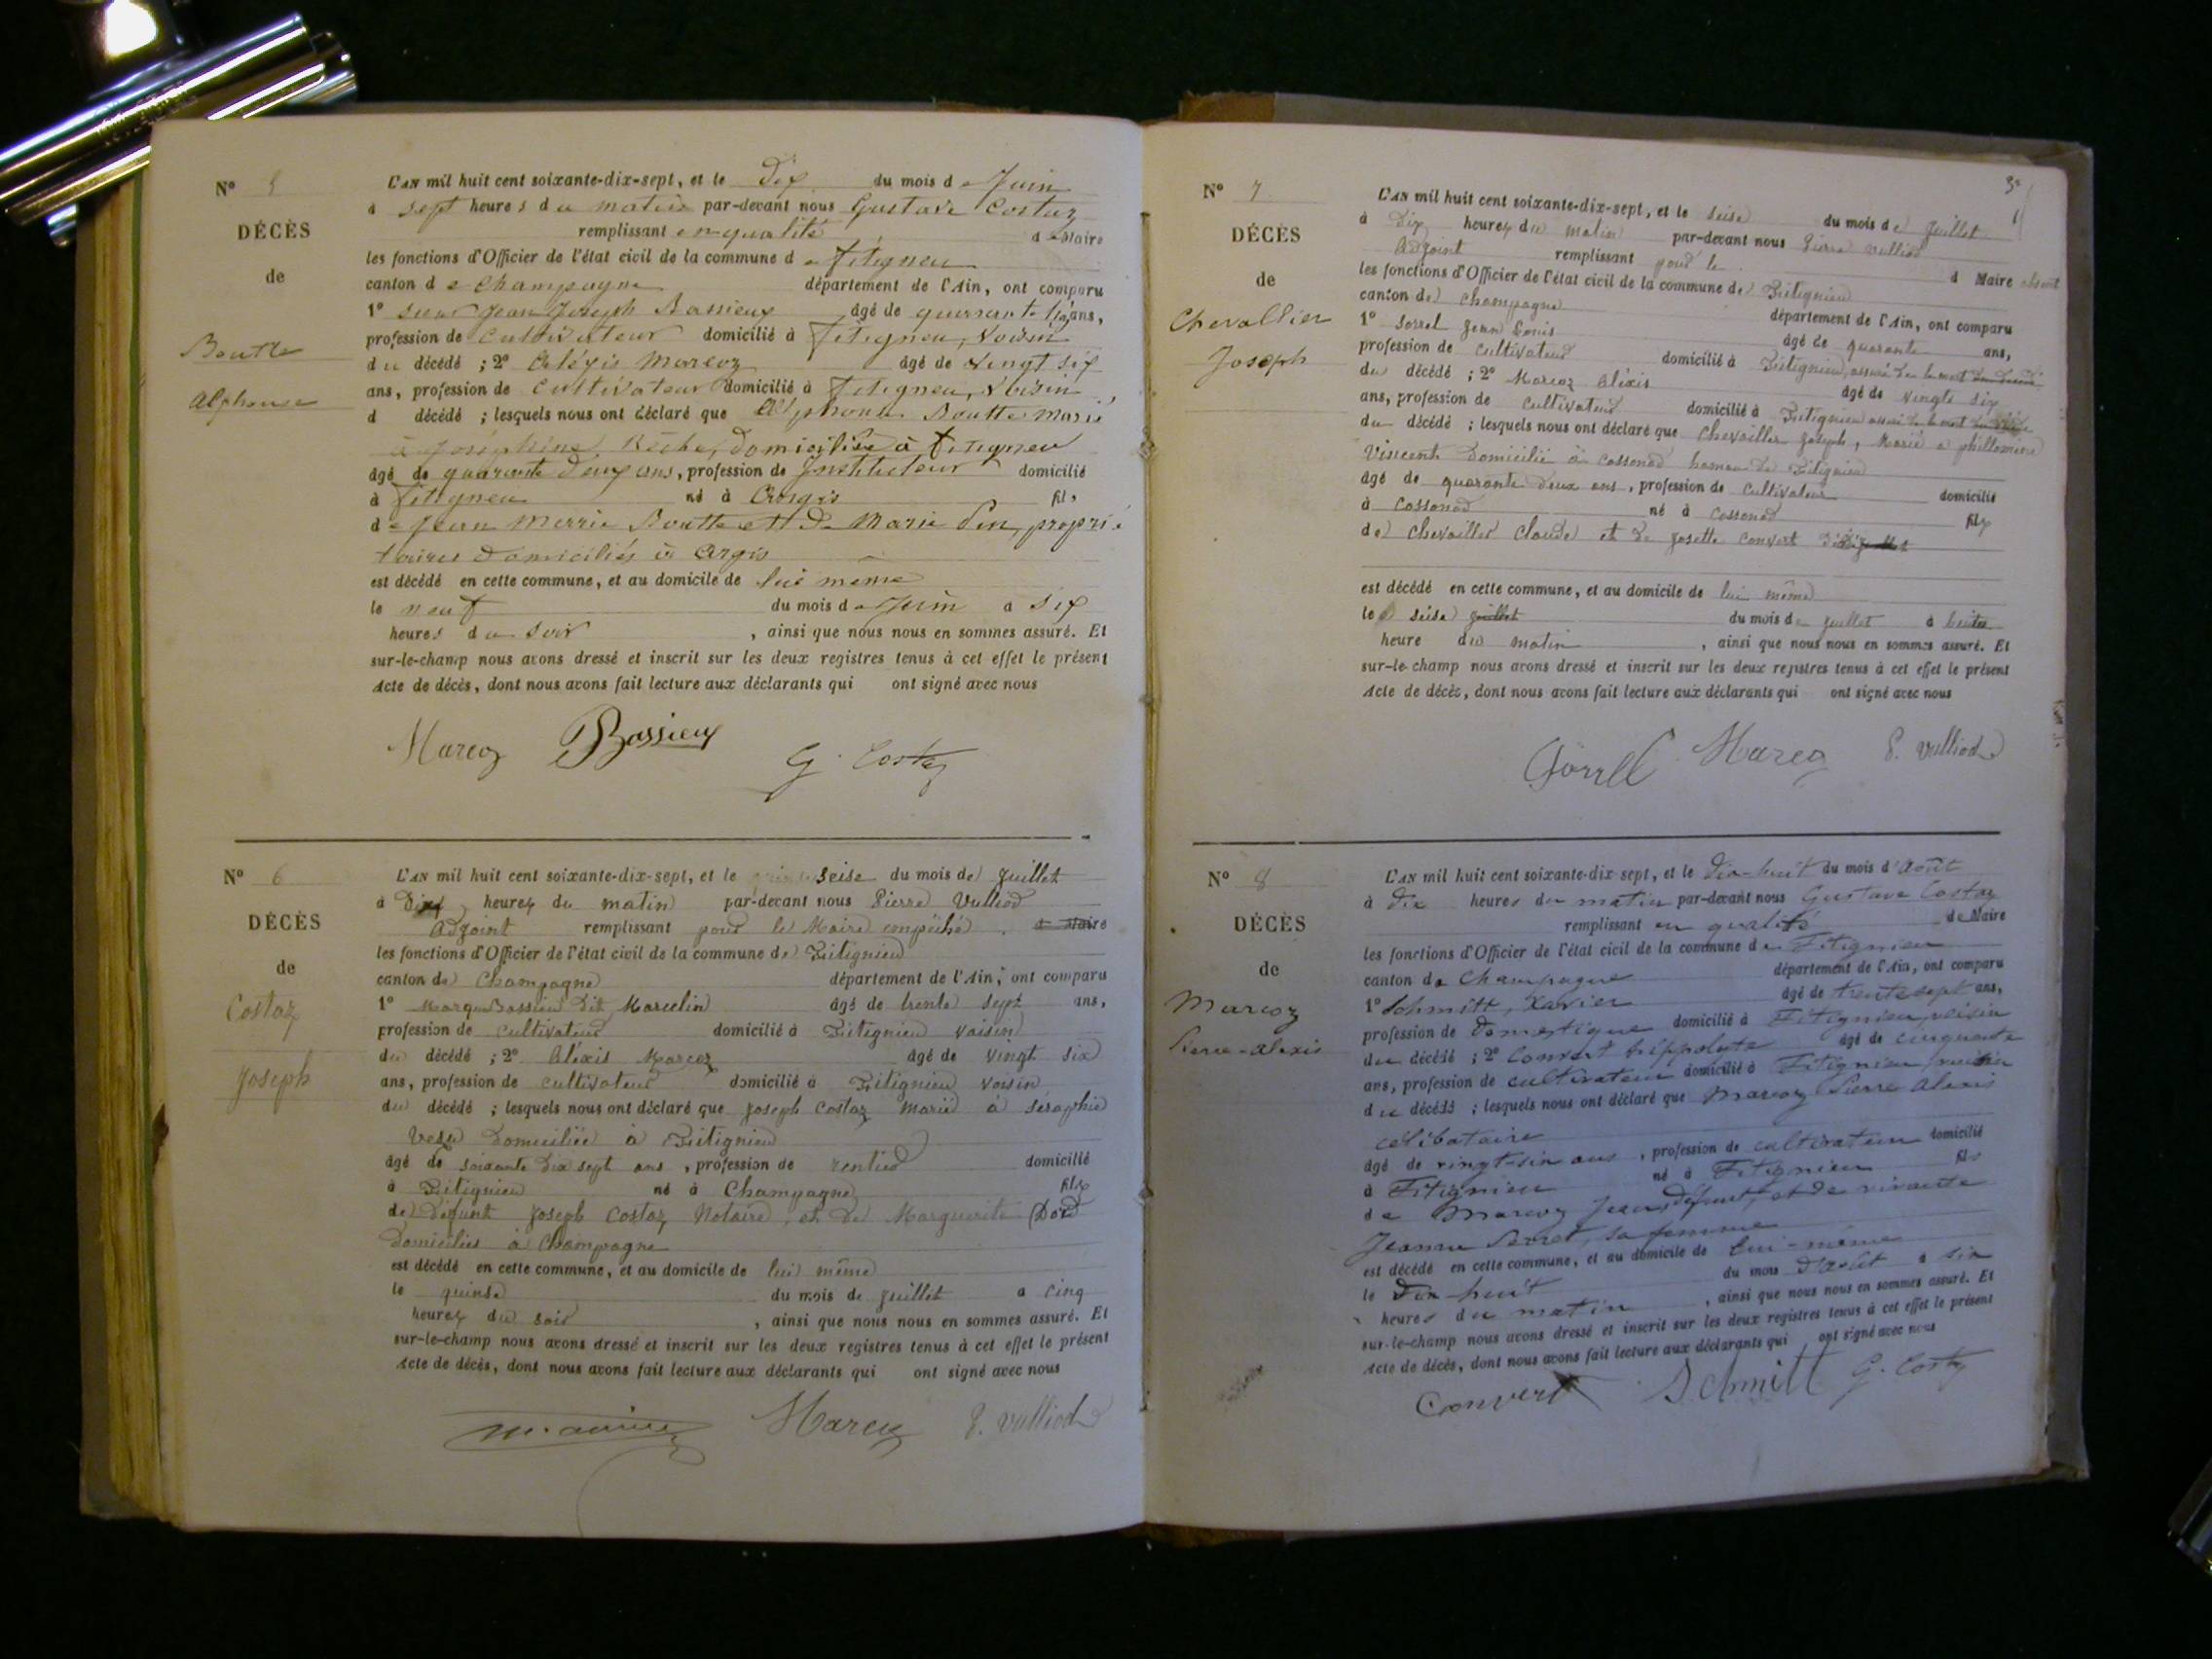 N° 5
DÉCÈS
de
Boutte
Alphonse
L'AN mil huit cent soixante-dix-sept, et le Dix du mois de Juin
à sept heures du matin par-devant nous Gustave Costaz
remplissant en qualité de Maire
les fonctions d'Officier de l'état civil de la commune de Fitigneu
canton de Champagne département de l'Ain, ont comparu
1° sieur Jean Joseph Bassieux âgé de ans,
profession de Cultivateur domicilié à Fitigneu, Voisin
du décédé ; 2° Aléxis Marcoz âgé de Vingt six
ans, profession de Cultivateur domicilié à Fitigneu, Voisin
d décédé ; lesquels nous ont déclaré que Alphonse Boutte Marié
à Joséphine domiciliée à Fitigneu
âgé de quarante deux ans, profession de Instituteur domicilié
à Fitigneu né à Argis fils
de Jean Boutte et de Marie proprié
taires domiciliés à Argis
est décédé en cette commune, et au domicile de lui même
le neuf du mois de Juin à six
heures du soir , ainsi que nous nous en sommes assuré. Et
sur-le-champ nous avons dressé et inscrit sur les deux registres tenus à cet effet le présent
Acte de décès, dont nous avons fait lecture aux déclarants qui ont signé avec nous
Marcoz Bassieux G. Costaz
N° 6
DÉCÈS
de
Costaz
Joseph
L'AN mil huit cent soixante-dix-sept, et le seise du mois de Juillet
à Dix heures du matin par-devant nous Pierre Vulliod
Adjoint remplissant pour le Maire empêché d Maire
les fonctions d'Officier de l'état civil de la commune de Fitignieu
canton de Champagne département de l'Ain, ont comparu
1° Bassieu Dit Marcelin âgé de trente sept ans,
profession de cultivateur domicilié à Fitignieu voisin
du décédé ; 2° Aléxis Marcoz âgé de vingt six
ans, profession de cultivateur domicilié à Fitignieu voisin
du décédé ; lesquels nous ont déclaré que Joseph Costaz marié à séraphie
domiciliée à Fitignieu
âgé de soixante dix sept ans , profession de rentier domicilié
à Fitignieu né à Champagne fils
de défunt Joseph Costaz Notaire, et de Marguerite
Domiciliés à Champagne
est décédé en cette commune, et au domicile de lui même
le quinse du mois de Juillet à cinq
heures du soir , ainsi que nous nous en sommes assuré. Et
sur-le-champ nous avons dressé et inscrit sur les deux registres tenus à cet effet le présent
Acte de décès, dont nous avons fait lecture aux déclarants qui ont signé avec nous
Marcoz P. Vulliod
N° 7
DÉCÈS
de
Chevallier
Joseph
L'AN mil huit cent soixante-dix-sept, et le seise du mois de Juillet
à Dix heures du matin par-devant nous Pierre Vulliod
Adjoint remplissant pour le d Maire absent
les fonctions d'Officier de l'état civil de la commune de Fitignieu
canton de Champagne département de l'Ain, ont comparu
1° Sorrel Jean Louis âgé de quarante ans,
profession de cultivateur domicilié à Fitignieu
du décédé ; 2° Marcoz Aléxis âgé de vingt six
ans, profession de cultivateur domicilié à Fitignieu
du décédé ; lesquels nous ont déclaré que Chevallier Joseph, Marié a phillomène
Vincent Domicilié à Cossonod hameau de Fitignieu
âgé de quarante deux ans , profession de cultivateur domicilié
à Cossonod né à Cossonod fils
de Chevallier Claude et de Josette Convert
est décédé en cette commune, et au domicile de lui même
le seise juillet du mois de juillet à huit
heure du matin , ainsi que nous nous en sommes assuré. Et
sur-le-champ nous avons dressé et inscrit sur les deux registres tenus à cet effet le présent
Acte de décès, dont nous avons fait lecture aux déclarants qui ont signé avec nous
Sorrel Marcoz P. Vulliod
N° 8
DÉCÈS
de
Marcoz
Pierre-Alexis
L'AN mil huit cent soixante-dix-sept, et le dix-huit du mois d'Août
à dix heures du matin par-devant nous Gustave Costaz
remplissant en qualité de Maire
les fonctions d'Officier de l'état civil de la commune de Fitignieu
canton de Champagne département de l'Ain, ont comparu
1° Schmitt, Xavier âgé de trente sept ans,
profession de Domestique domicilié à Fitignieu, voisin
du décédé ; 2° Convert hippolyte âgé de cinquante
ans, profession de cultivateur domicilié à Fitignieu, voisin
du décédé ; lesquels nous ont déclaré que Marcoz Pierre Alexis
célibataire
âgé de vingt-six ans , profession de cultivateur domicilié
à Fitignieu né à Fitignieu fils
de Marcoz Jean, défunt, et de vivante
Jeanne sa femme
est décédé en cette commune, et au domicile de lui-même
le dix-huit du mois d'août à six
heures du matin , ainsi que nous nous en sommes assuré. Et
sur-le-champ nous avons dressé et inscrit sur les deux registres tenus à cet effet le présent
Acte de décès, dont nous avons fait lecture aux déclarants qui ont signé avec nous
Convert Schmitt G. Costaz